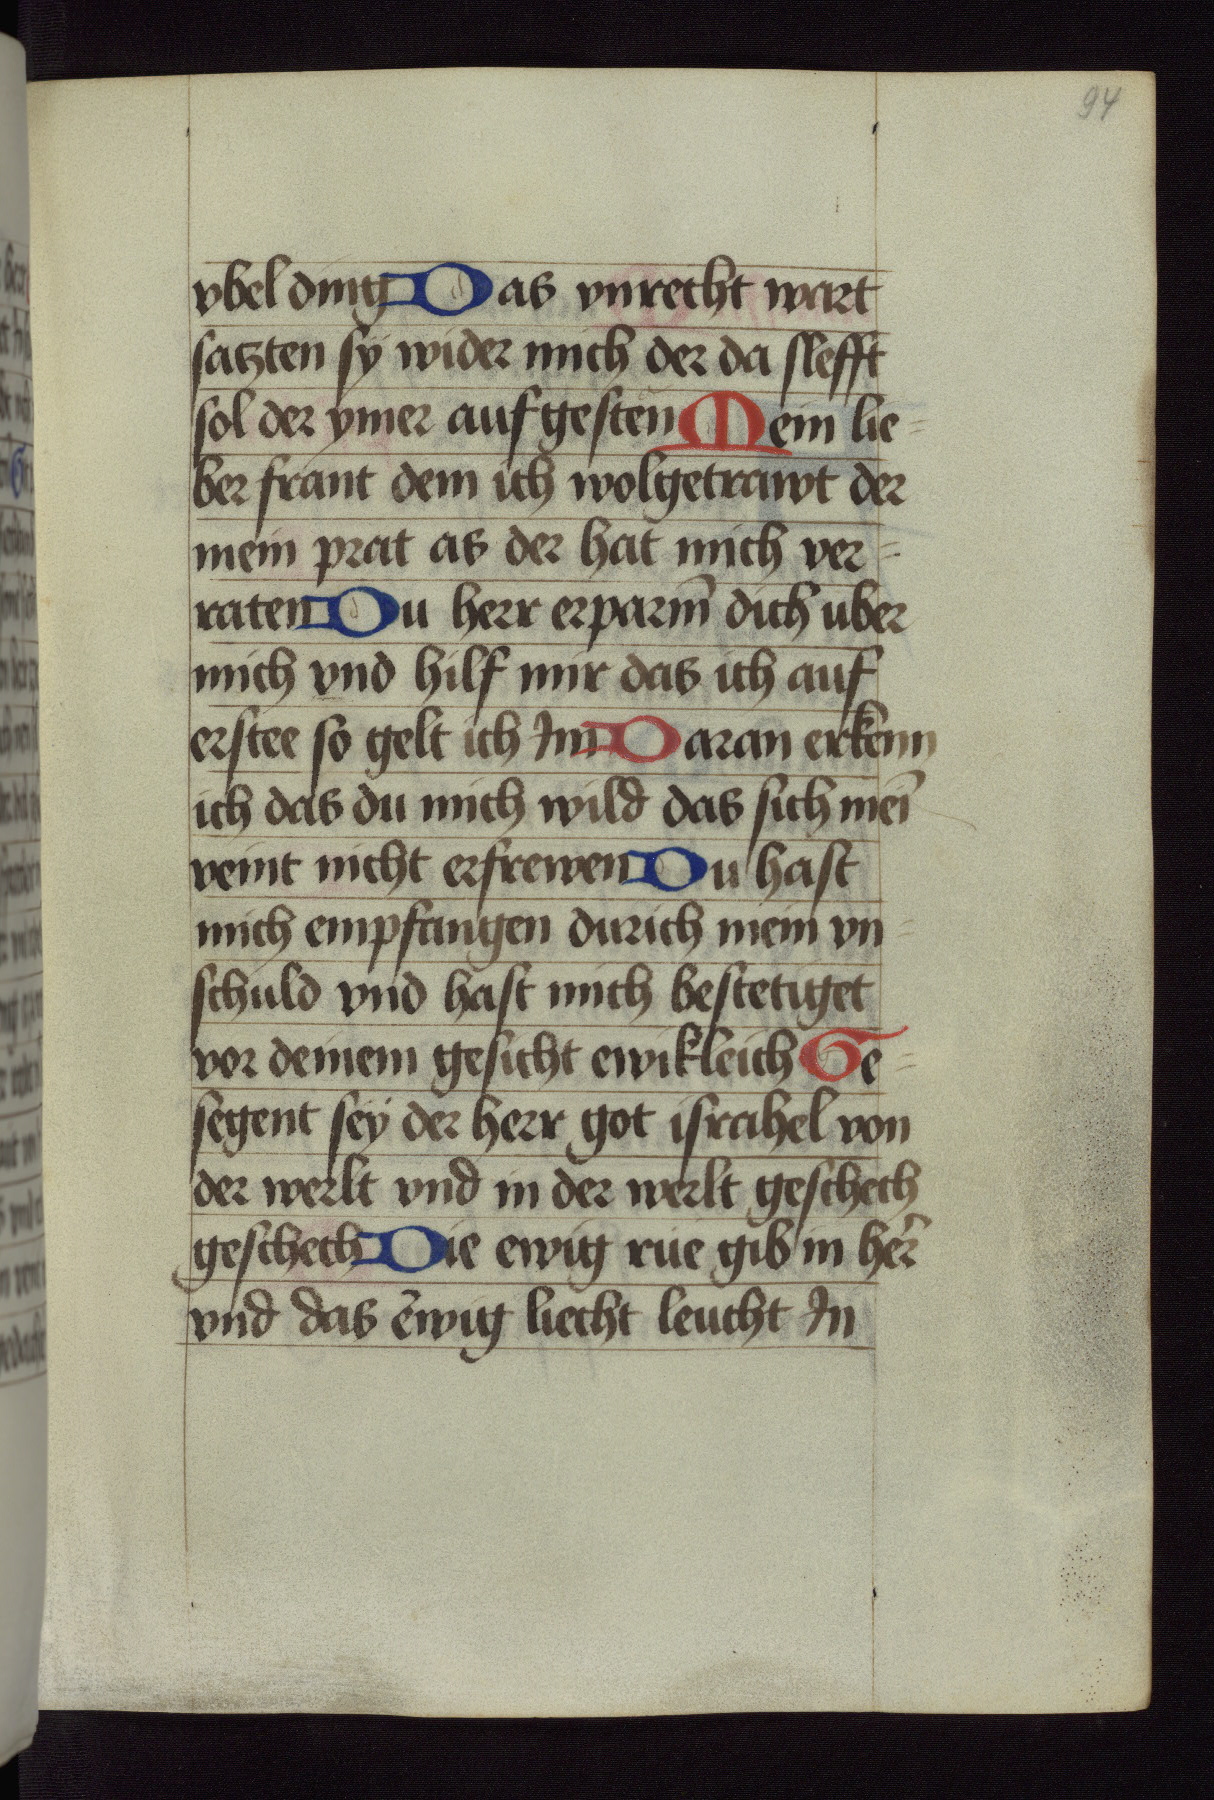 94
vbel ding Das vnrecht wart
satzten sÿ wider mich der da slefft
sol der ymer auf gesten Mein lie=
ber frant dem ich wolgetrawt der
mein prat as der hat mich ver=
raten Du herr erparm̄ dich uber
mich vnd hilf mir das ich auf
erstee so gelt ich Im Daran erkenn
ich das du mich wild das sich mei̅
veint nicht erfrewen Du hast
mich empfangen durich mein vn=
schuld vnd hast mich bestetiget
vor deinem gesicht ewikleich Ge=
segent seÿ der herr got israhel von
der werlt vnd in der werlt geschech
geschech Die ewig rue gib in her̅
vnd das ewig liecht leucht In